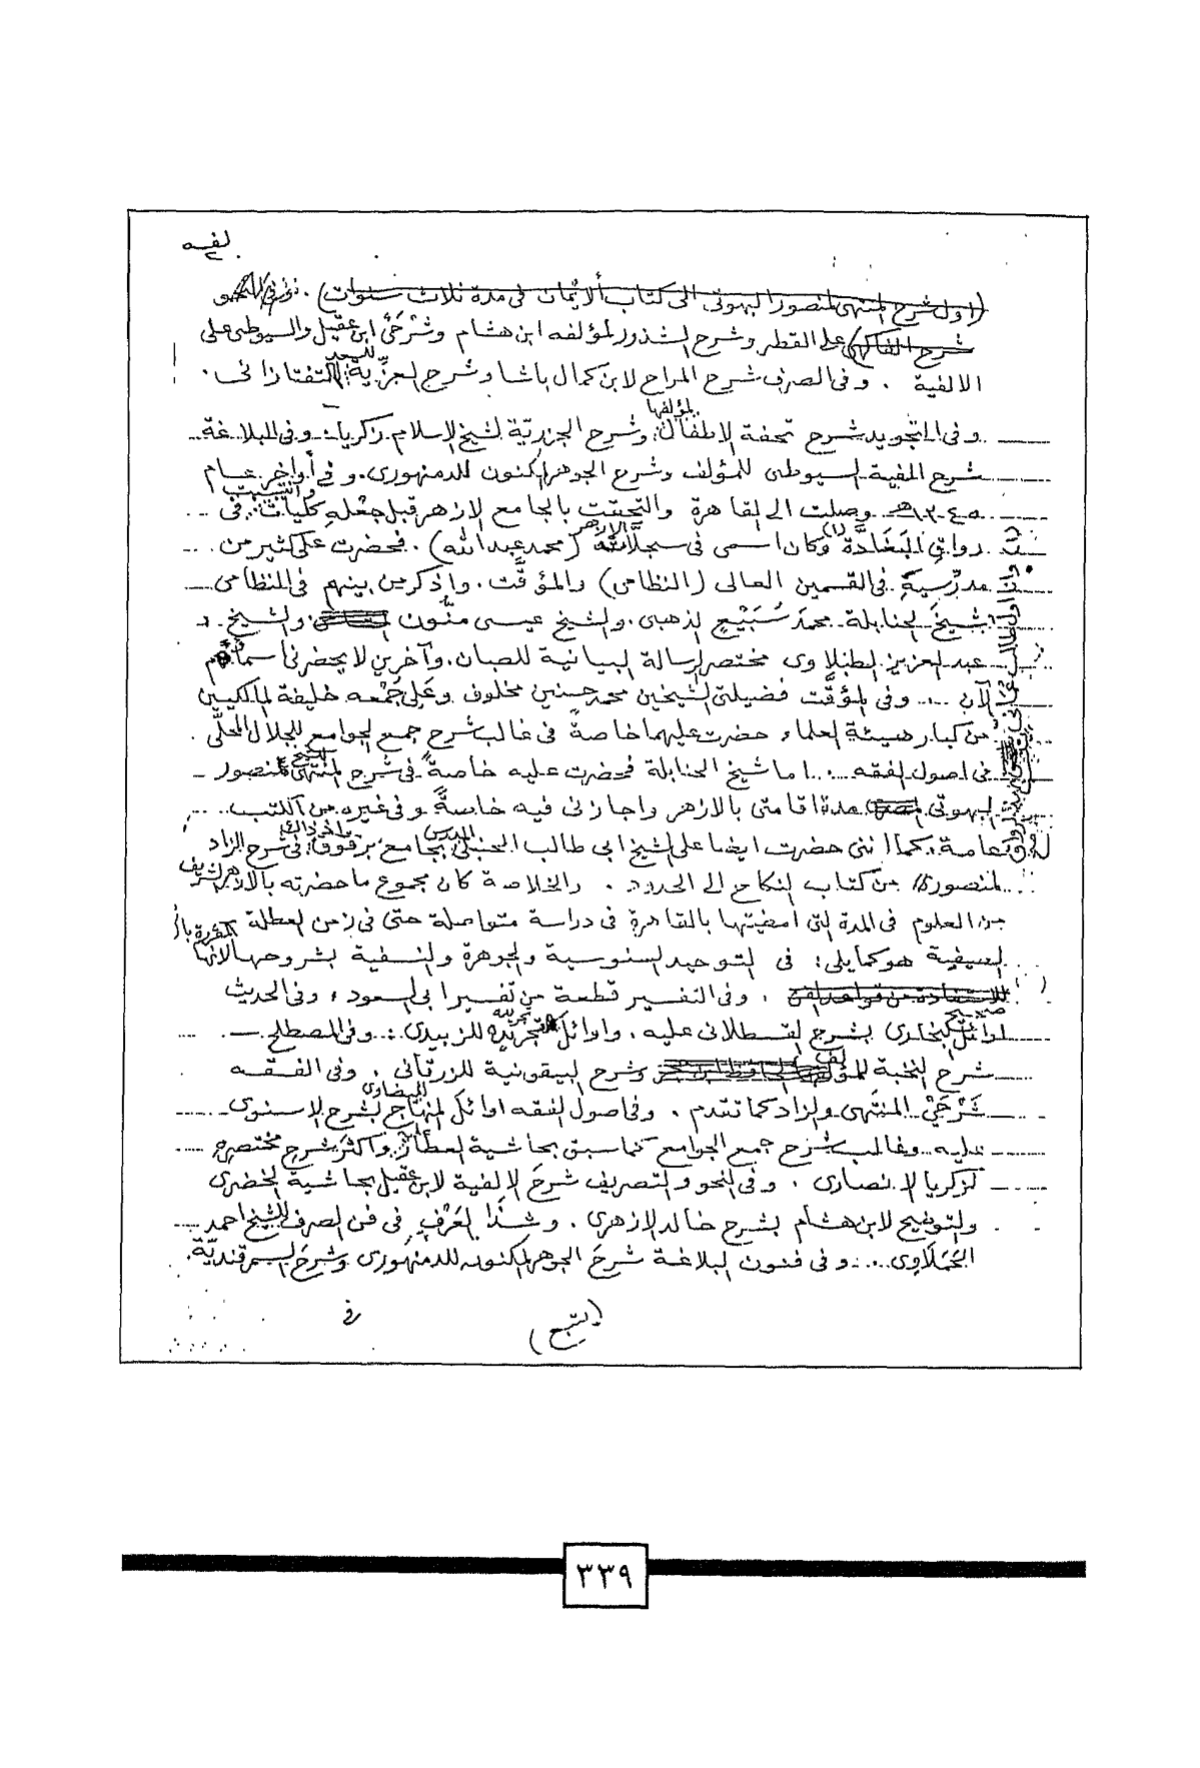 (اول شرح المنتهى لمنصور البهوتى الى كتاب الأيمان فى مدة ثلاث سنوات). وفى النحو
شرح الفاكهى على القطر وشرح الشذور لمؤلفه ابن هشام وشرحَىْ ابن عقيل والسيوطى على
الالفية . وفى الصرف شرح المراح لابن كمال باشا وشرح العزّية للسعد التفتازانى .
وفى التجويد شرح تحفة الاطفال لمؤلفها وشرح الجزريّة لشيخ الاسلام زكريا . وفى البلاغة
شرح الفية السيوطى للمؤلف وشرح الجوهر المكنون للدمنهورى . وفى أواخر عام
وصلت الى القاهرة والتحقت بالجامع الازهر قبل جعْلهِ كليات فى
رواق البَغَادَّة (١) وكان اسمى فى سجلات الازهر (محمد عبد الله) . فحضرت على كثير من
مدرّسيهِ فى القسمين العالى (النظامى) والمؤقّت . واذكر من بينهم فى النظامى
شيخَ الحنابلة محمدَ سُبَيْعٍ الذهبى . والشيخ عيسى منّون والشيخ
عبد العزيز مختصر الرسالة البيانية للصبان . وآخرين لا يحضرنى اسماؤهم
الآن ... وفى المؤقّت فضيلتى الشيخين محمد حسنين مخلوف وعَلى جُمْعه خليفة المالكيين
من كبار هيئة العلماء حضرت عليهما خاصةً فى غالب شرح جمع الجوامع للجلال المحلّى .
فى اصول الفقه ... اما شيخ الحنابلة فحضرت عليه خاصةً فى شرح المنتهى للشيخ منصور
البهوتى مدة اقامتى بالازهر واجازنى فيه خاصةً وفى غيره من الكتب
عامة . كما اننى حضرت ايضا على الشيخ ابى طالب الحنبلى المدرس بجامع برقوق فى شرح الزاد
لمنصور من كتاب النكاح الى الحدود . والخلاصة كان مجموع ما حضرته بالازهر الشريف
من العلوم فى المدة التى امضيتها بالقاهرة فى دراسة متواصلة حتى فى زمن العطلة
الصيفية هو كما يلى : فى التوحيد السنوسية والجوهرة والنسفية بشروحها
وفى التفسير قطعة من تفسير ابى السعود ، وفى الحديث
اوائل صحيح البخارى بشرح القسطلانى عليه . واوائل للزبيدى .. وفى المصطلح
شرح النخبة وشرح البيقونية للزرقانى . وفى الفقه
شَرْحَىْ المنتَهى والزاد كما تقدم . وفى اصول الفقه اوائل المنهاج للبيضاوى بشرح الاسنوى
عليه وغالب شرح جمع الجوامع كما سبق بحاشية العطّار واكثرَ شرحِ مختصرهِ
لزكريا الانصارى . وفى النحو والتصريف شرحَ الالفية لابن عقيل بحاشية الخضرى
والتوضيح لابن هشام بشرح خالد الازهرى . وشذَا العَرْفِ فى فن الصرف للشيخ احمد
الحَمَلاوى ... وفى فنون البلاغة شرحَ الجوهر المكنون للدمنهورى وشرحَ السمرقنديّة .
(يتبع)
فى
٣٣٩